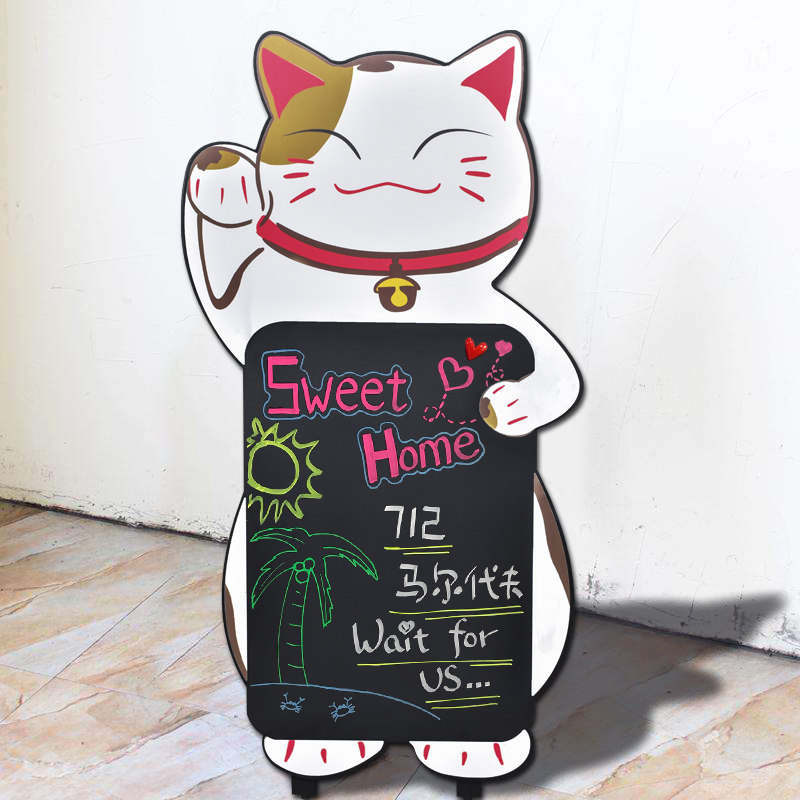 Sweet
Home
712
马尔代夫
Wait for
US...